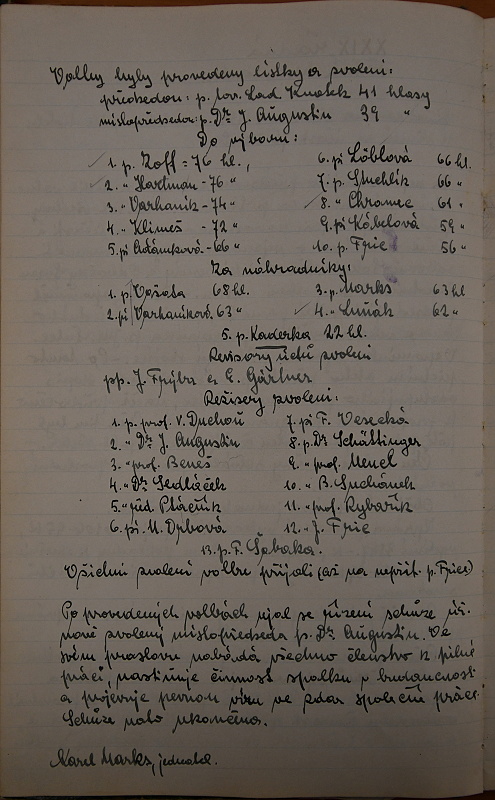 Volby byly provedeny lístky a zvoleni:
předsedou: p. tov. Lad. Knotek 41 hlasy
místopředsedou: p. Dr. J. Augustin 39 "
Do výboru:
1. p. Zoff = 76 hl., 6. pí Löblová 66 hl.
2. " Hartman - 76 " 7. p. Suchlík 66 "
3. " Varhaník - 74 " 8. " Chromec 61 "
4. " Klimeš - 72 " 9. pí Köbelová 59 "
5. pí Adámková - 66 " 10. p. Frič 56 "
Za náhradníky:
1. p. Vošata 68 hl. 3. p. Marks 63 hl
2. pí Varhaníková 63 " 4. " Luňák 62 "
5. p. Kaderka 22 hl.
Revisory účtů zvoleni
pp. J. Frýba a E. Gärtner
Režisery zvoleni:
1. p. prof. V. Duchoň 7. pí F. Veselá
2. " Dr. J. Augustin 8. p. Dr. Schättinger
3. " prof. Beneš 9. " prof. Mencl
4. " Dr. Sedláček 10. " B. Suchánek
5. " řed. Ptáčník 11. " prof. Rybařík
6. pí M. Drbová 12. " J. Frič
13. p. F. Šabaka.
Všichni zvolení volbu přijali (až na nepřít. p. Friče)
Po provedených volbách ujal se řízení schůze úř.
nově zvolený místopředseda p. Dr. Augustin. Ve
svém proslovu nabádá všechno členstvo k pilné
práci, nastiňuje činnost spolku v budoucnosti
a projevuje pevnou víru ve zdar společné práce.
Schůze nato ukončena.
Karel Marks, jednatel.